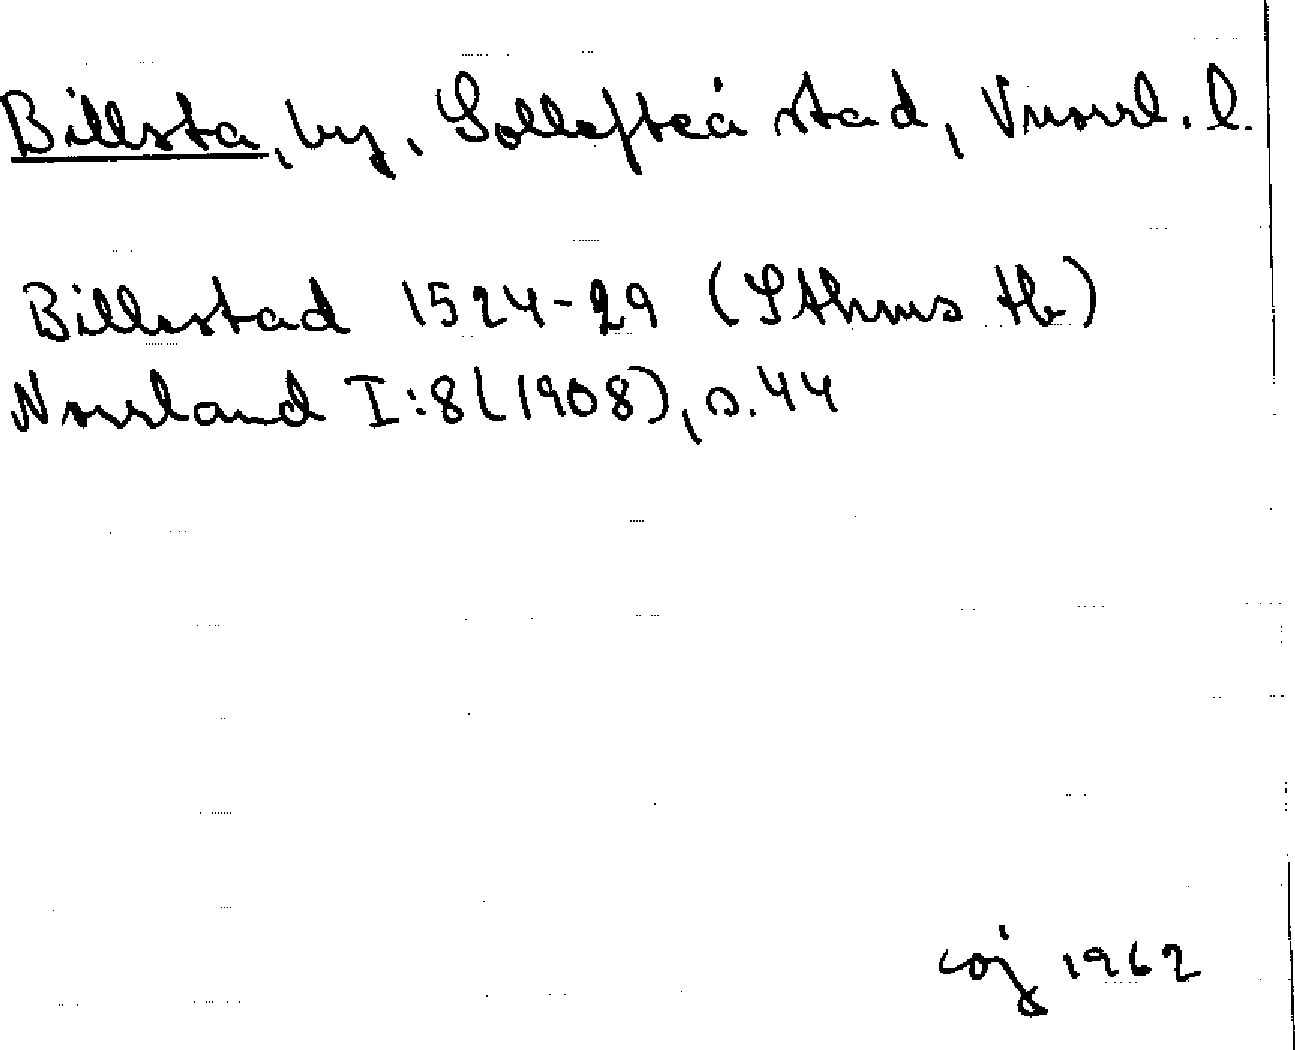 Billsta, by, Sollefteå stad, Vnorrl. l.
Billestad 1524-29 (Sthms tb)
Norrland I:8 (1908), s. 44
coj 1962